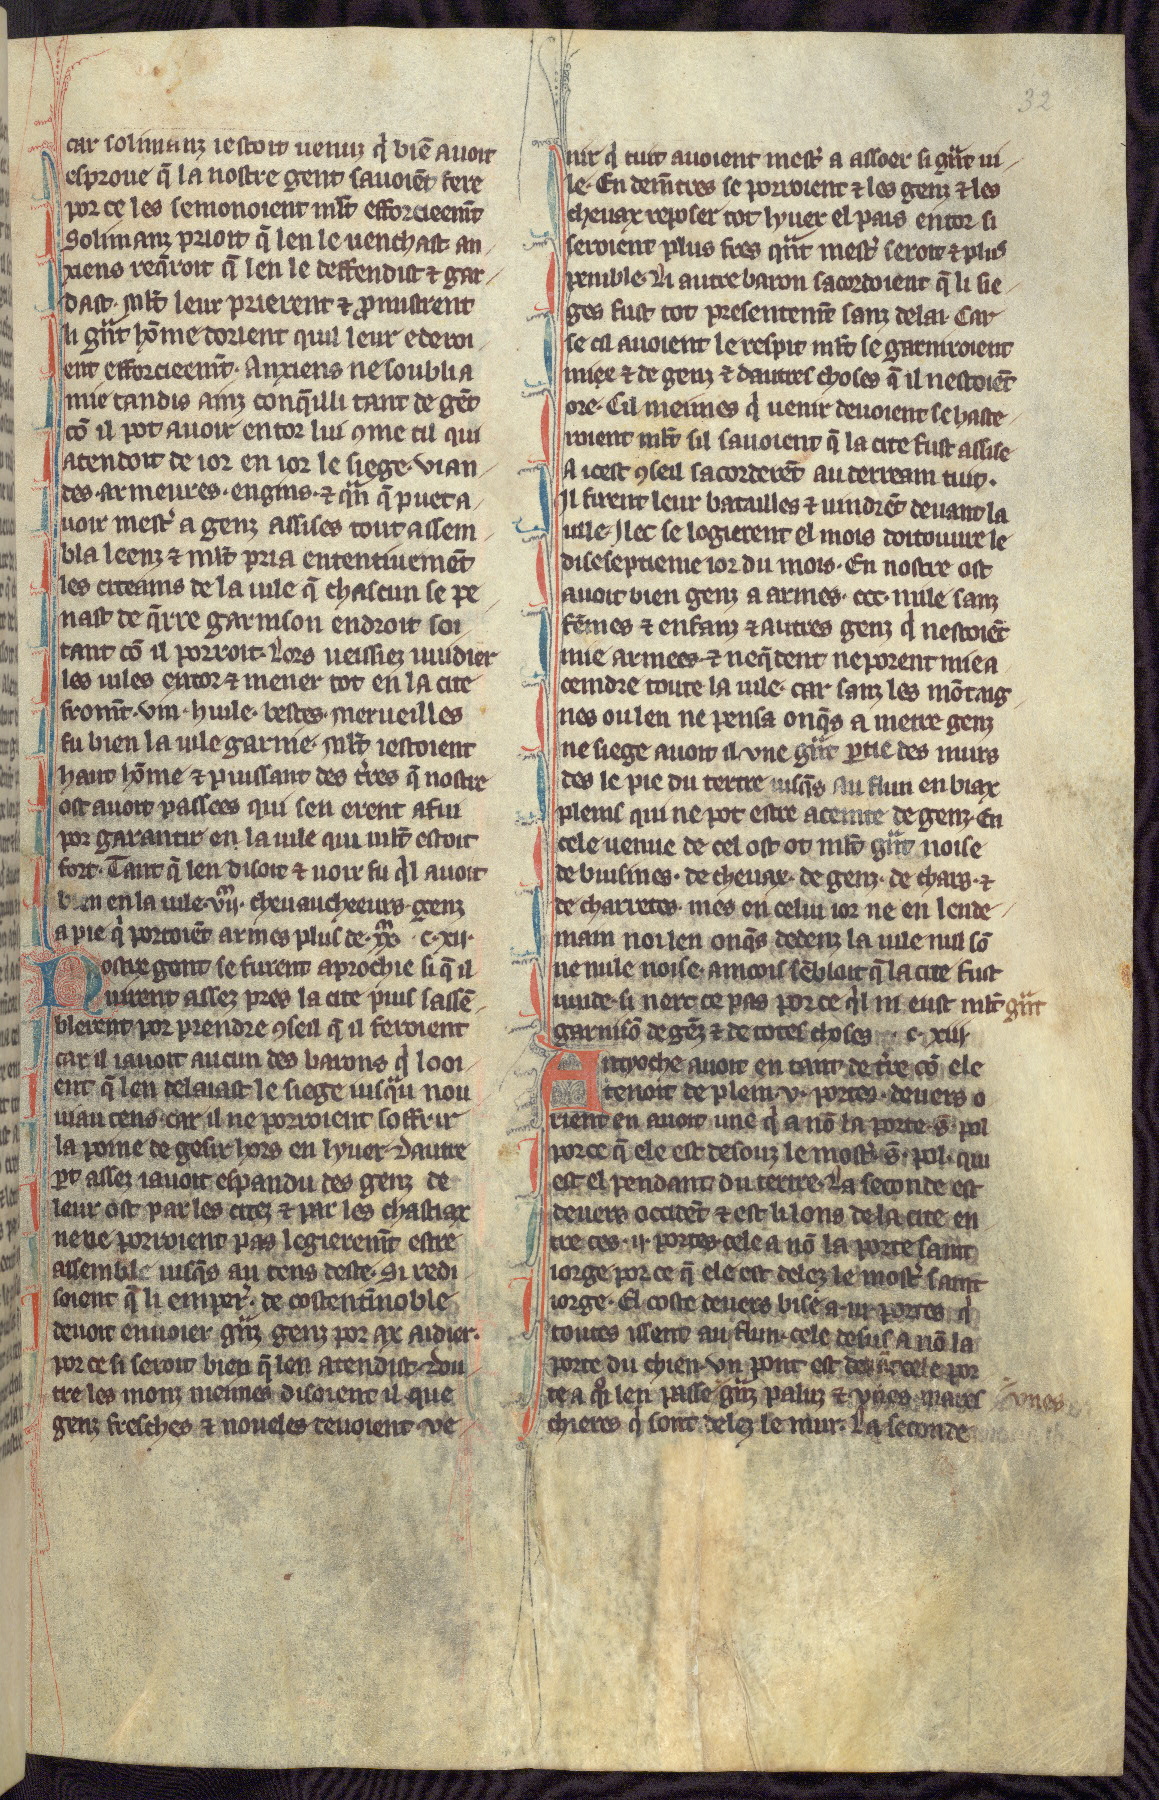 32
car solimanz iestoit uenuz q̇ biē auoit
esproue q̄ la nostre gent sauoiēt fere
por ce les semonoient ml̄t efforcieem̄t
Solimanz prioit q̄ len le uenchast an
xiens req̄roit q̄ len le deffendist ⁊ gar
dast. ml̄t leur prierent ⁊ ꝓmistrent
li gũt hōme dorient quil leur ederoi
ent efforcieem̄t. Anxiens ne soublia
mie tandis ainz conq̄illi tant de gēt
cō il pot auoir entor lui ꝯme cil qui
atendoit de ior en ior le siege. vian
des. armeures. engins. ⁊ q̃n q̄ puet a
uoir mest̉ a genz assises tout assem
bla leenz ⁊ ml̄t pria ententiuemēt
les citeains de la uile q̄ chascun se pe
nast de q̄rre garnison endroit soi
tant cō il porroit. Lors ueissiez uuidier
les uiles entor ⁊ mener tot en la cite
from̄t. vin. huile. bestes. merueilles
fu bien la uile garnie. ml̄t iestoient
haut hōme ⁊ puissant des t̉res q̄ nostre
ost auoit passees qui sen erent afui
por garantir en la uile qui ml̄t estoit
fort. Tant q̄ len disoit ⁊ uoir fu q̇l auoit
bien en la uile .vijᵐ. cheuaucheeurs. genz
a pie q̇ portoiēt armes plus de .xxᵐ. c. xij.
Nostre gent se furent aprochie si q̄ il
uirent assez pres la cite puis sassē
blerent por prendre ꝯseil q̄ il feroient
car il iauoit aucun des barons q̇ looi
ent q̄ len delaiast le siege iusq̃u nou
uiau tens. car il ne porroient soffrir
la poine de gesir hors en lyuer. Dautre
p̱t assez iauoit espandu des genz de
leur ost par les citez ⁊ par les chastiax
ne ne porroient pas legierem̄t estre
assemble iusq̄s au tens deste. Si redi
soient q̄ li emper̉. de costentīnoble
deuoit enuoier gũz genz por ax aidier.
por ce si seroit bien q̄ len atendist. Dou
tre les monz meimes disoient il que
genz fresches ⁊ noueles deuoient ve
nir q̇ tuit auoient mest̉ a assoer si gũt ui
le. En dem̄tres se porroient ⁊ les genz ⁊ les
cheuax reposer tot lyuer el pais entor si
seroient plus fres q̃nt mest̉ seroit ⁊ plus
penible. Li autre baron sacordoient q̄ li sie
ges fust tot presentem̄t sanz delai. Car
se cil auoient le respit ml̄t se garniroient
miez ⁊ de genz ⁊ dautres choses q̄ il nestoiēt
ore. Cil meimes q̇ uenir deuoient se haste
roient ml̄t sil sauoient q̄ la cite fust assise
A icest ꝯseil sacorderēt au derreain tuit.
Il firent leur batailles ⁊ uindrēt deuant la
uille. Ilec se logierent el mois doitouure le
diseseptieme ior du mois. En nostre ost
auoit bien genz a armes. ccc. mile sanz
fēmes ⁊ enfanz ⁊ autres genz q̇ nestoiēt
mie armees. ⁊ neq̄dent ne porent mie a
ceindre toute la uile. car sanz les mōtaig
nes ou len ne pensa onq̄s a metre genz
ne siege auoit il vne gũt p̱tie des murs
des le pie du tertre iusq̄s au flun en biax
pleins qui ne pot estre aceinte de genz. En
cele uenue de cel ost ot ml̄t gũt noise
de buisines. de cheuax. de genz. de chars. ⁊
de charretes. mes en celui ior ne en lende
main noi len onq̄s dedenz la uile nul sō
ne nule noise. ancois sēbloit q̄ la cite fust
uuide. si nert ce pas por ce q̇l ni eust ml̄t gũt
garnisō de gēz ⁊ de totes choses c. xiij
Antyoche auoit en tant de t̉re cō ele
tenoit de plein .v. portes. deuers o
rient en auoit une q̇ a nō la porte. s̄. pol
por ce q̄ ele est desouz le most̉. s̄. pol. qui
est el pendant du tertre. La seconde est
deuers occidēt ⁊ est li lons de la cite en
tre ces .ij. portes. cele a nō la porte saint
iorge por ce q̄ ele est delez le most̉ saint
iorge. El coste deuers bise a .iij. portes q̇
toutes issent au flun. cele desus a nō la
porte du chien. vn pont est deuãt cele por
te a q̊i len passe gũz paluz ⁊ vnes mares
vnes
chieres q̇ sont delez le mur. La seconde